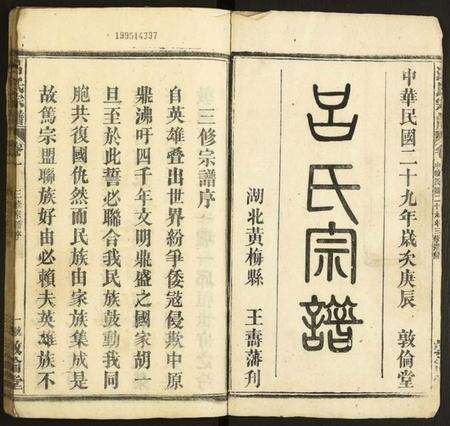 中華民國二十九年歲次庚辰 敦倫堂
呂氏宗譜
湖北黃梅縣 王壽藩刋
199514337
三修宗譜序
自英雄叠出世界紛爭倭寇侵欺中原
鼎沸吁四千年文明鼎盛之國家胡一
旦至於此誓必聯合我民族鼓動我同
胞共復國仇然而民族由家族集成是
故篤宗盟聯族好由必賴夫英雄族不
呂氏宗譜
三修宗譜序
一
敦倫堂